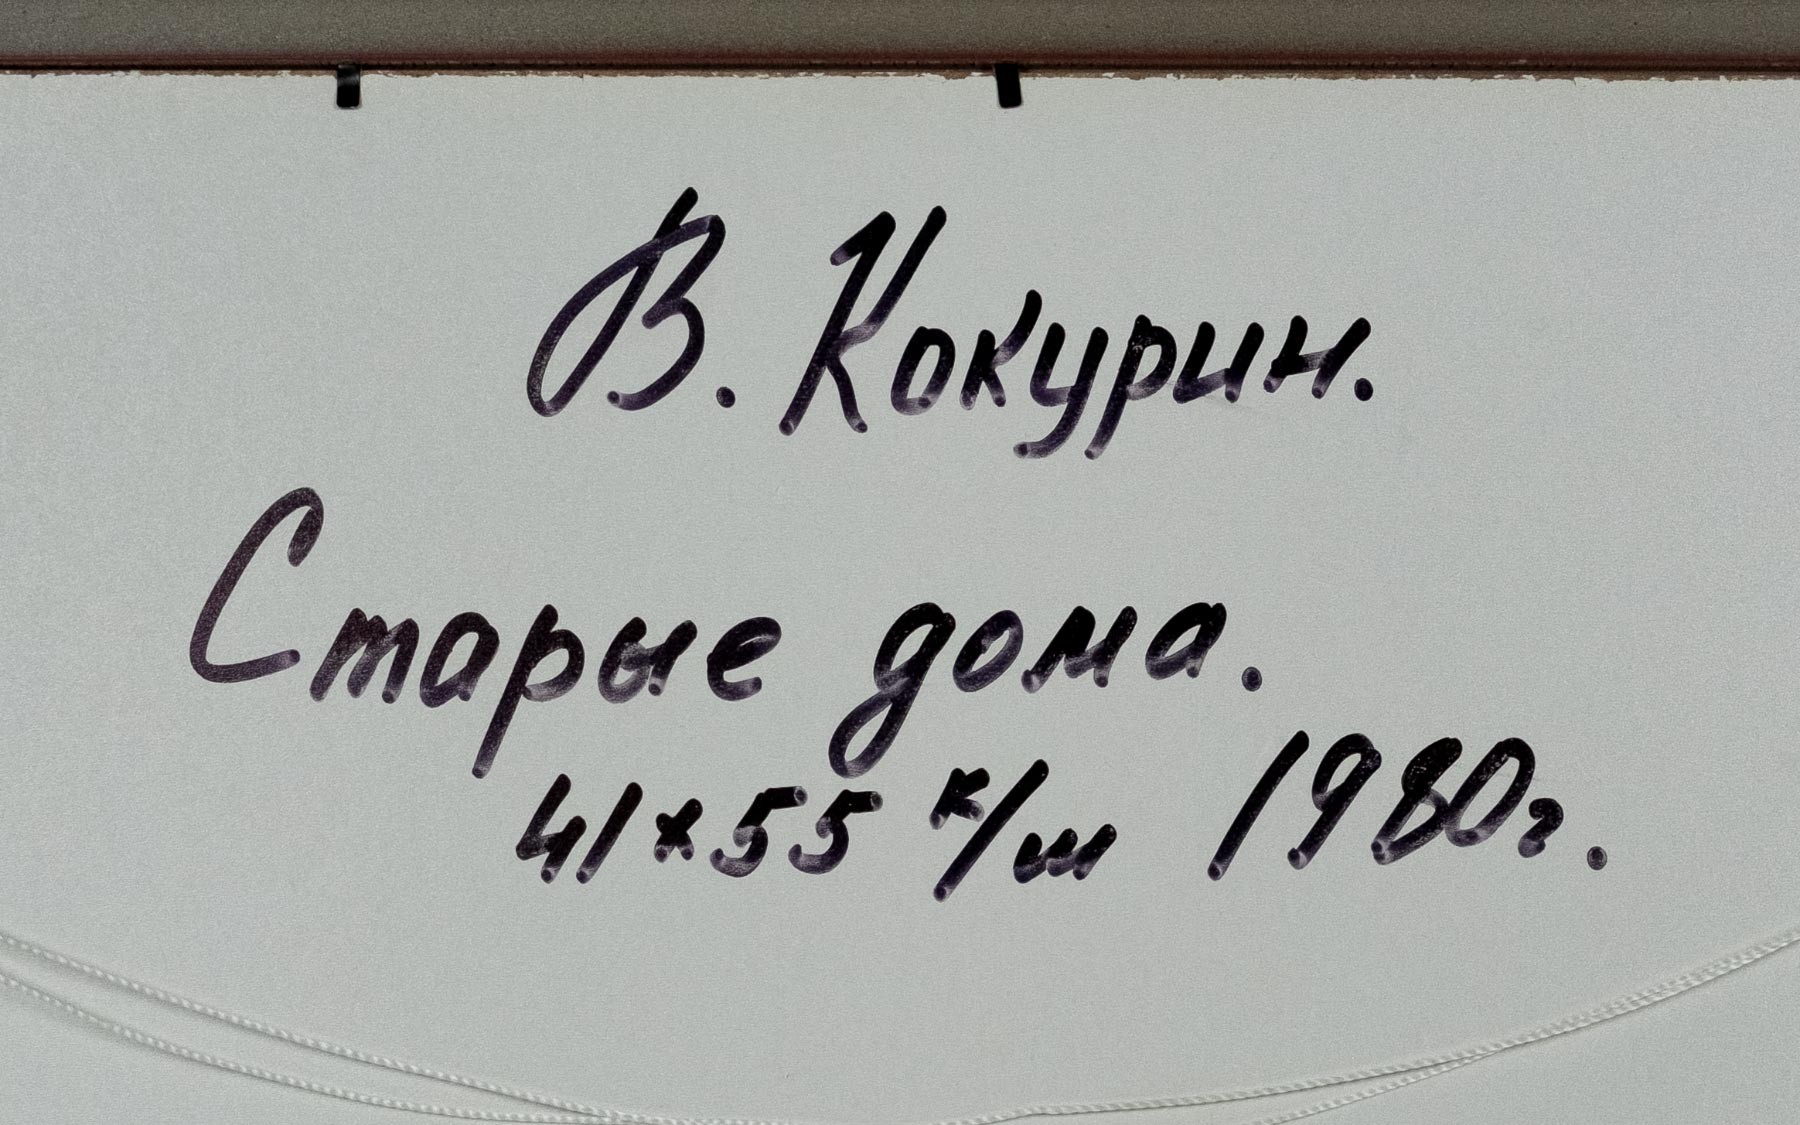 В. Кокурин.
Старые дома.
41×55 к/ш 1980г.